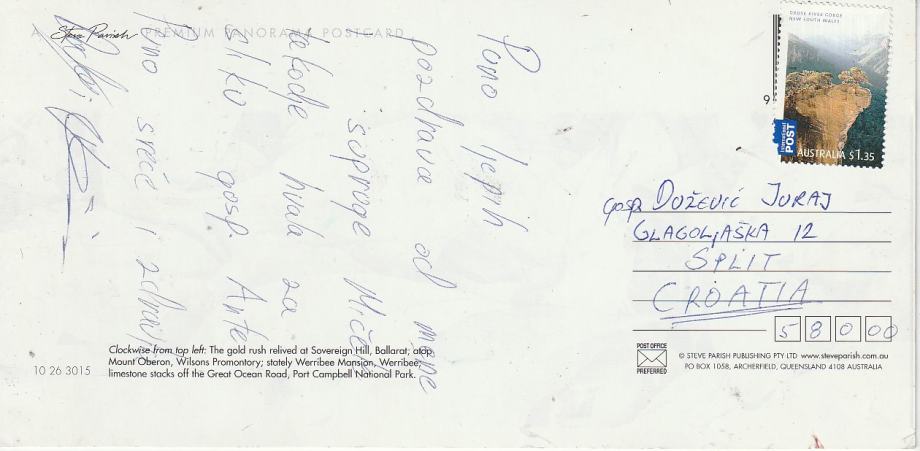 A Steve Parish PREMIUM PANORAMA POSTCARD
Puno lepih
pozdrava od mene
supruge
takođe hvala za
sliku gosp. Ante
Puno sreće i zdravi
GROSE RIVER GORGE
NEW SOUTH WALES
International
POST
AUSTRALIA $1.35
gosp. DUŽEVIĆ JURAJ
GLAGOLJAŠKA 12
SPLIT
CROATIA
58000
Clockwise from top left: The gold rush relived at Sovereign Hill, Ballarat; atop
Mount Oberon, Wilsons Promontory; stately Werribee Mansion, Werribee;
limestone stacks off the Great Ocean Road, Port Campbell National Park.
10 26 3015
POST OFFICE
PREFERRED
© STEVE PARISH PUBLISHING PTY LTD www.steveparish.com.au
PO BOX 1058, ARCHERFIELD, QUEENSLAND 4108 AUSTRALIA